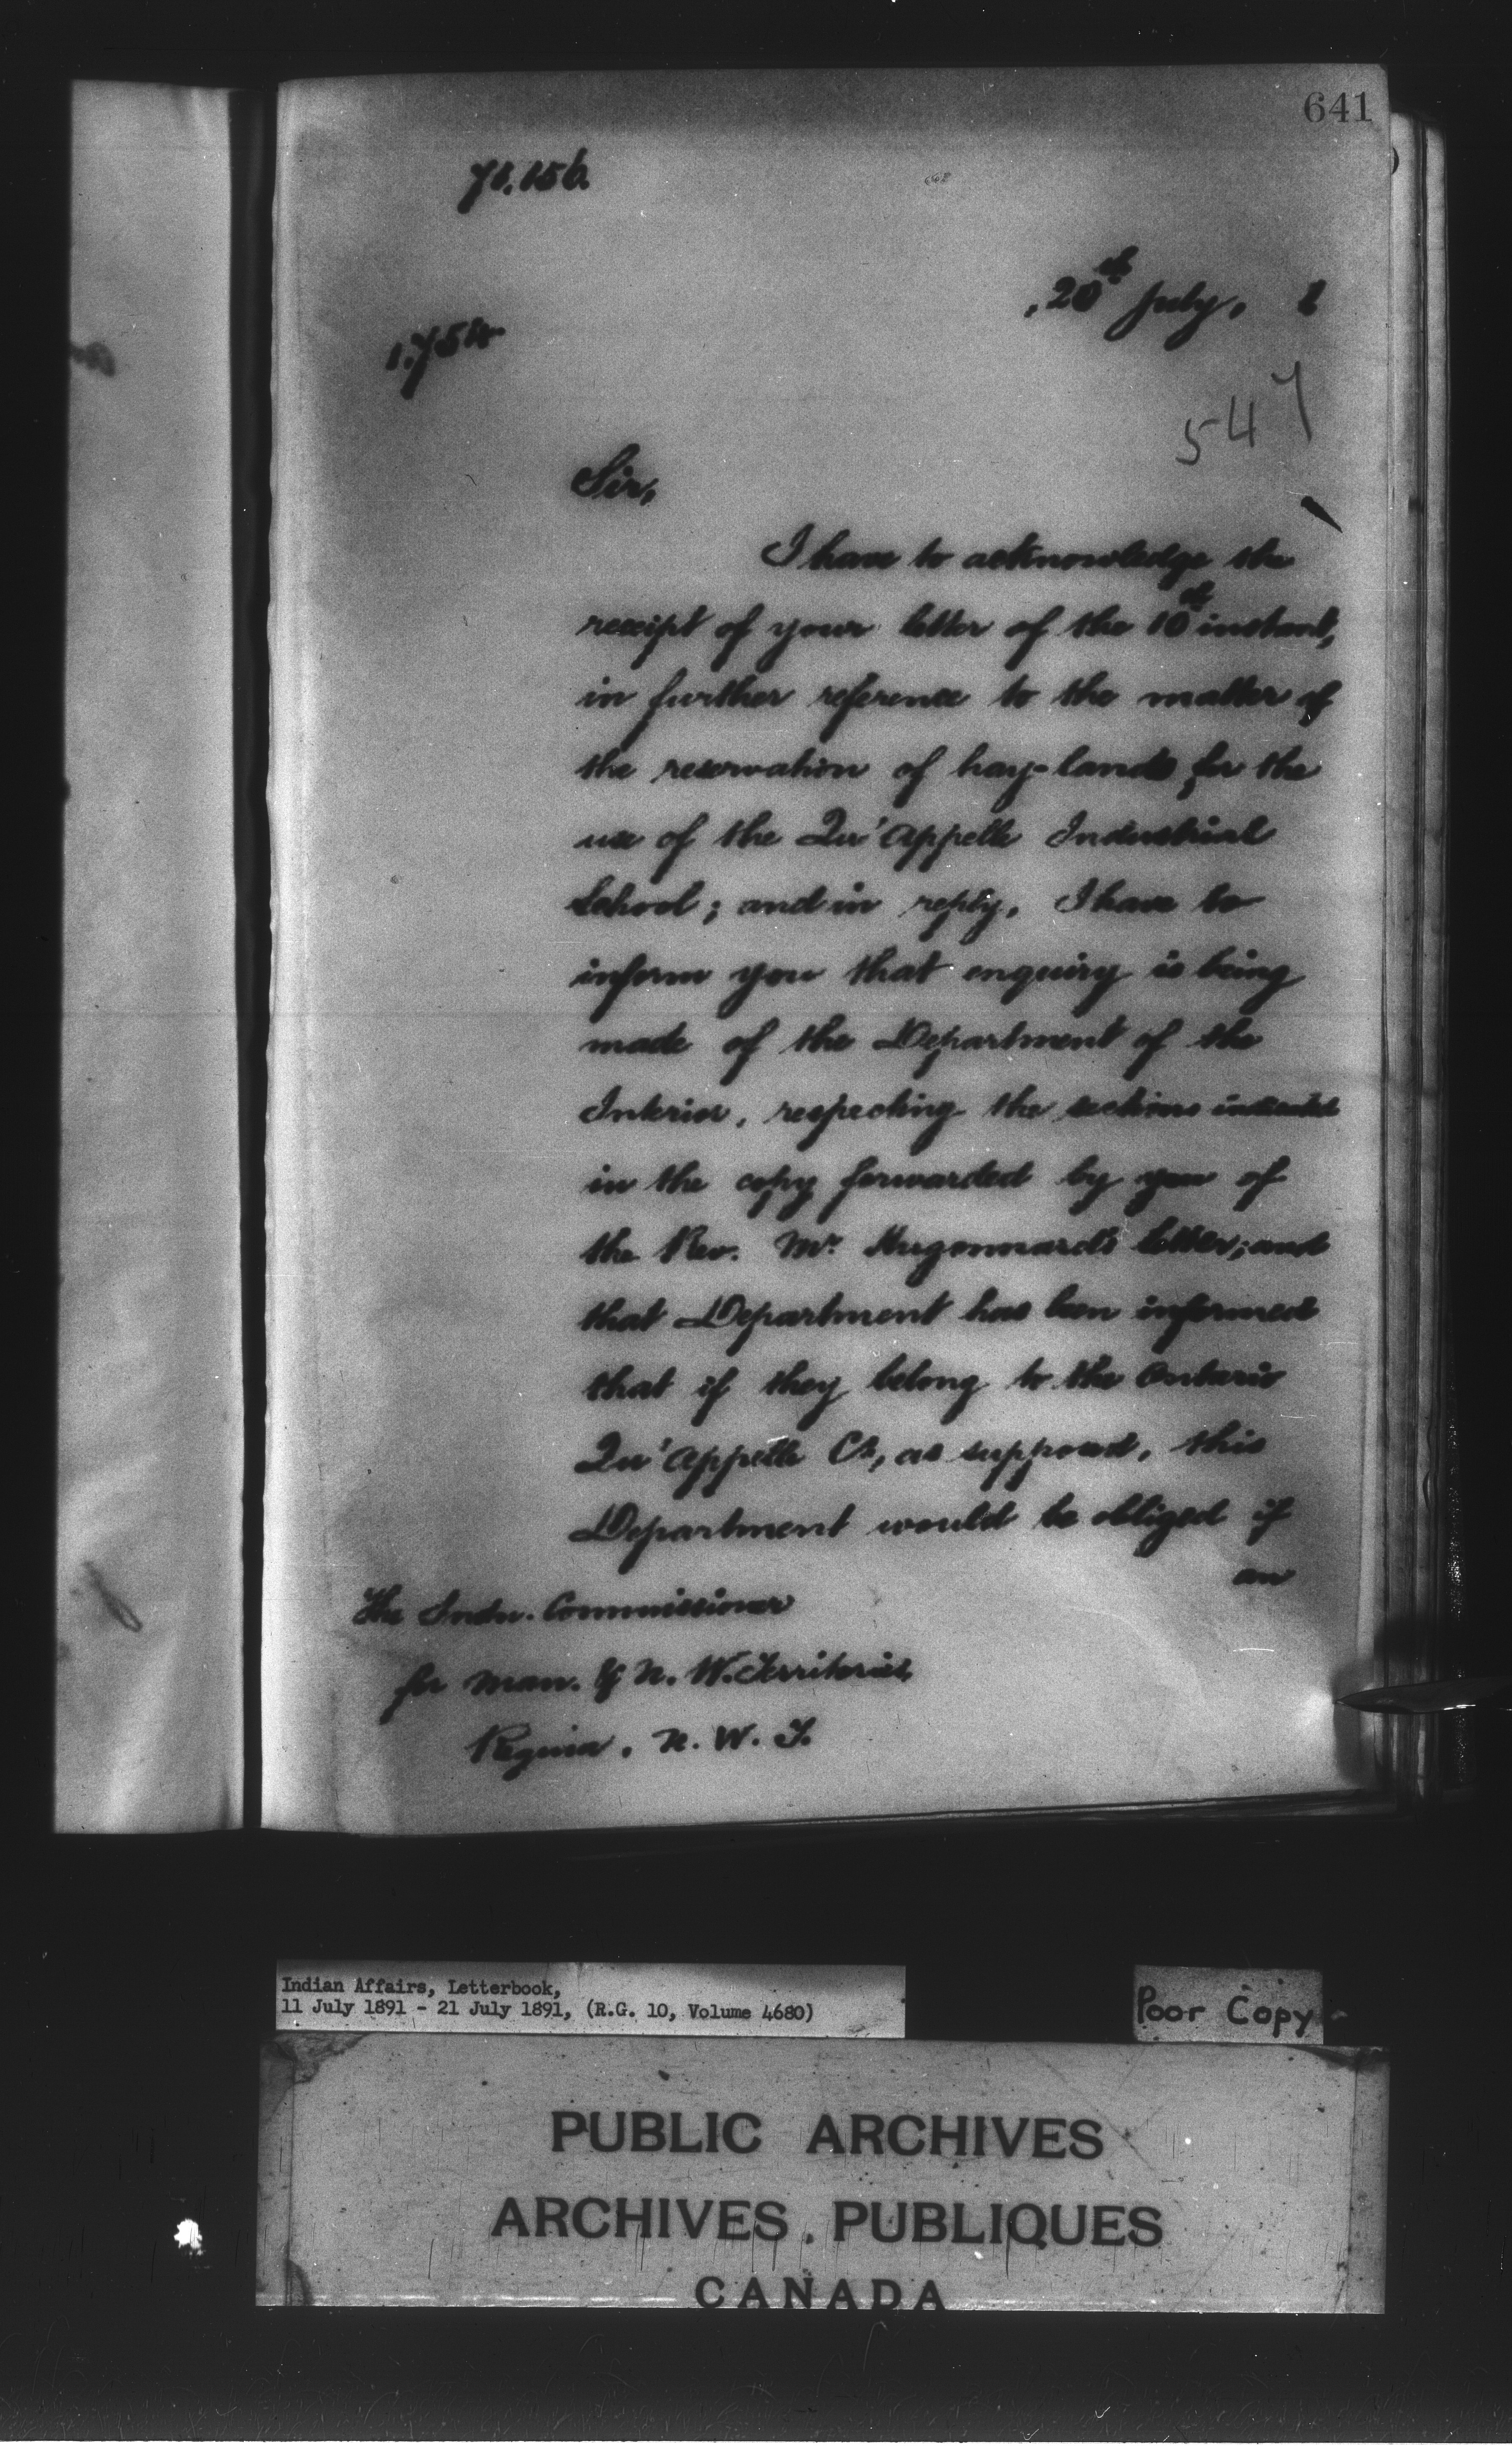 641
20th July, 1
547
Sir,
I have to acknowledge the
receipt of your letter of the 10th instant,
in further reference to the matter of
the reservation of hay-lands for the
use of the Qu'Appelle Industrial
School; and in reply, I have to
inform you that enquiry is being
made of the Department of the
Interior, respecting the sections indicated
in the copy forwarded by you of
the Rev. Mr. Hugonnard's letter; and
that Department has been informed
that if they belong to the Ontario
Qu'Appelle Co., as supposed, this
Department would be obliged if
an
The Indn. Commissioner
for Man. & N. W. Territories,
Regina, N. W. T.
Indian Affairs, Letterbook,
11 July 1891 - 21 July 1891, (R.G. 10, Volume 4680)
Poor Copy
PUBLIC ARCHIVES
ARCHIVES PUBLIQUES
CANADA